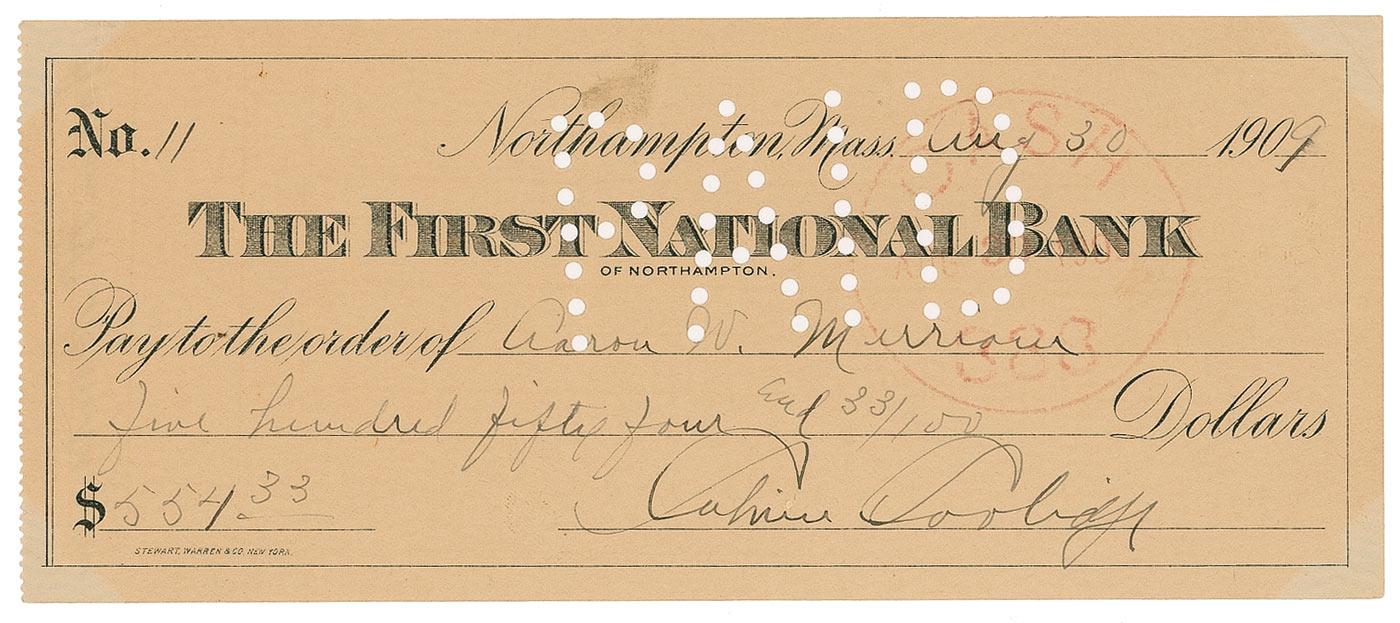 No. 11 Northampton, Mass. Aug 30 1909
THE FIRST NATIONAL BANK
OF NORTHAMPTON.
Pay to the order of Aaron W. Merriam
five hundred fifty four and 33/100 Dollars
$ 554 33 Calvin Coolidge
STEWART, WARREN & CO. NEW YORK.
PAID
CASH
383